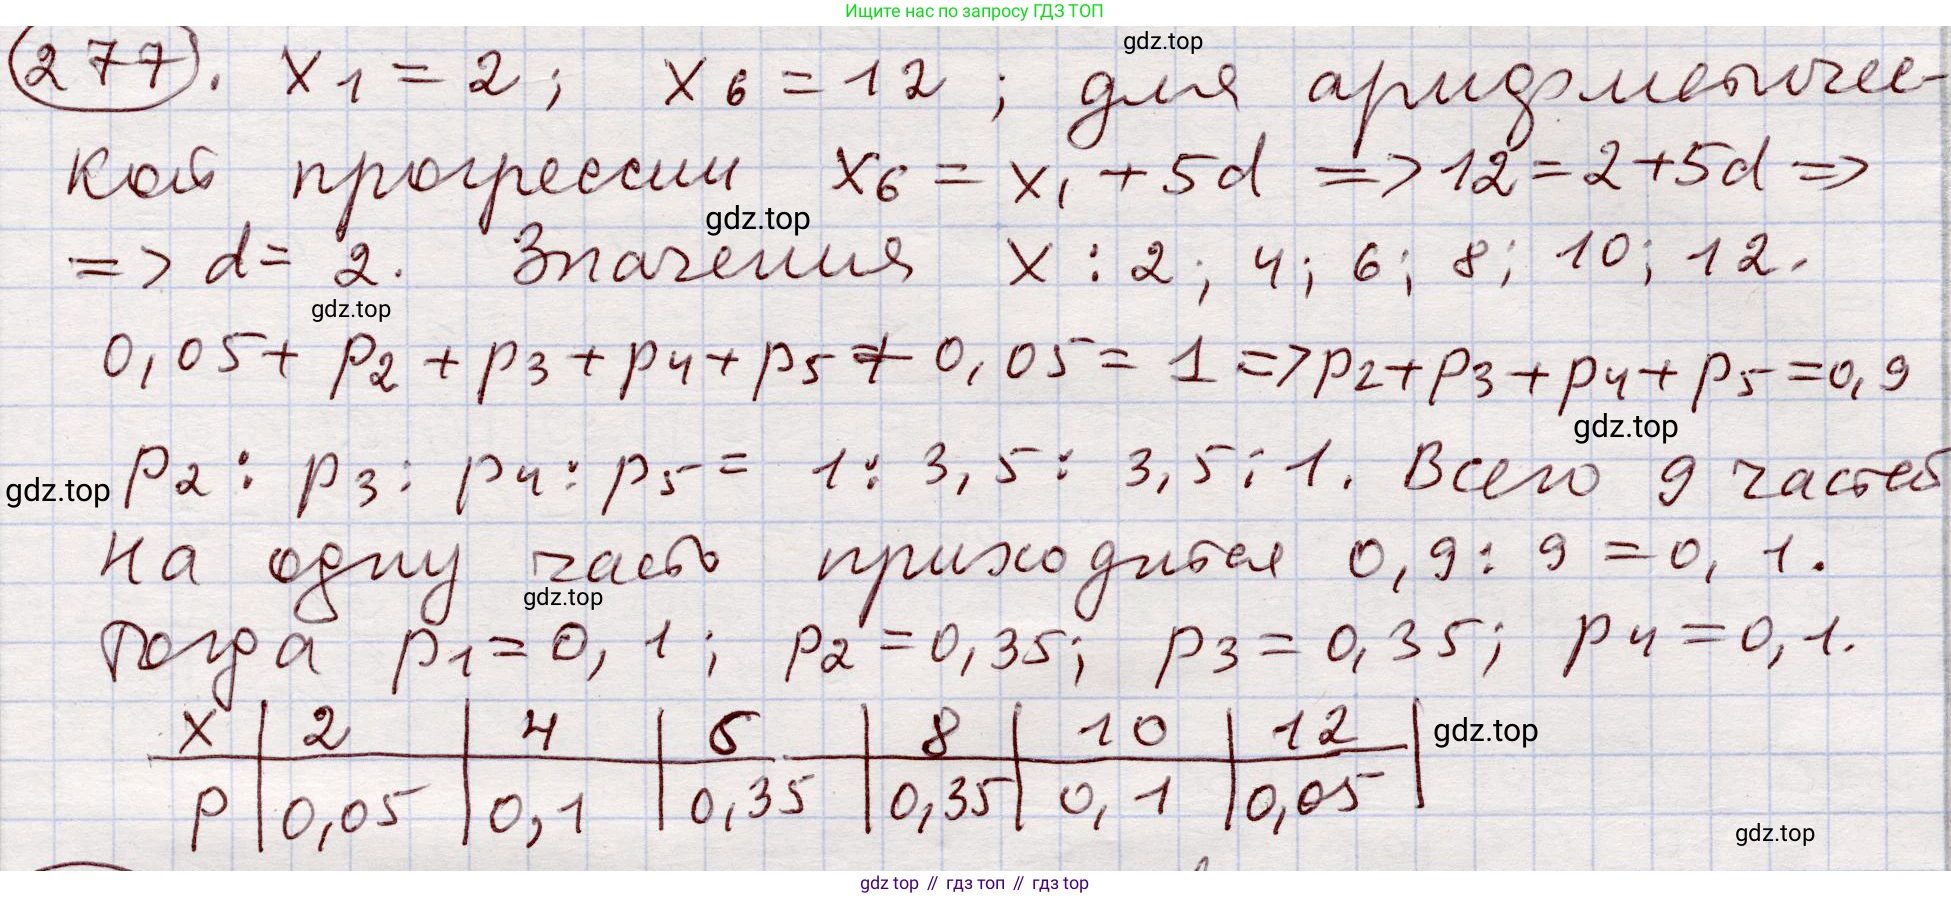 Ищите нас по запросу ГДЗ ТОП
gdz.top
277. x1 = 2; x6 = 12; для арифметичес-
кой прогрессии x6 = x1 + 5d => 12 = 2 + 5d =>
gdz.top
=> d = 2. Значения x: 2; 4; 6; 8; 10; 12.
gdz.top
0,05 + p2 + p3 + p4 + p5 + 0,05 = 1 => p2 + p3 + p4 + p5 = 0,9
gdz.top
gdz.top p2 : p3 : p4 : p5 = 1 : 3,5 : 3,5 : 1. Всего 9 частей
На одну часть приходится 0,9 : 9 = 0,1.
gdz.top
Тогда p1 = 0,1; p2 = 0,35; p3 = 0,35; p4 = 0,1.
X | 2 | 4 | 6 | 8 | 10 | 12 | gdz.top
P | 0,05 | 0,1 | 0,35 | 0,35 | 0,1 | 0,05
gdz.top
gdz top // гдз топ // гдз top